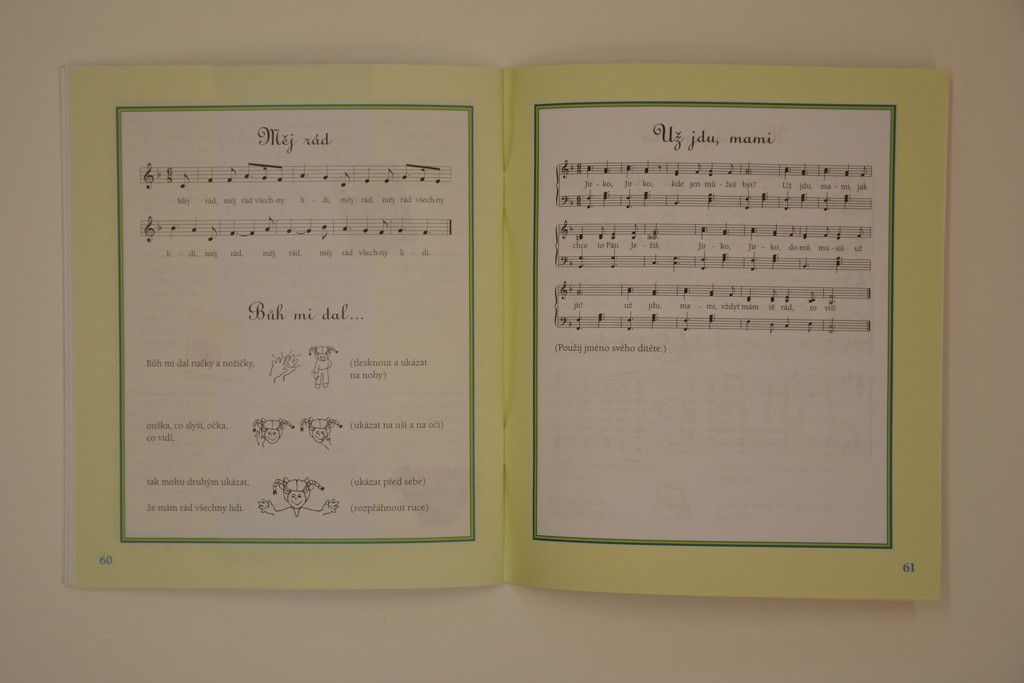 Měj rád
Měj rád, měj rád všech-ny li - di, měj rád, měj rád všech-ny
li - di, měj rád, měj rád, měj rád všech-ny li - di.
Bůh mi dal...
Bůh mi dal ručky a nožičky, (tlesknout a ukázat
na nohy)
ouška, co slyší, očka, (ukázat na uši a na oči)
co vidí,
tak mohu druhým ukázat, (ukázat před sebe)
že mám rád všechny lidi. (rozpřáhnout ruce)
60
Už jdu, mami
Jir - ko, Jir - ko, kde jen mů - žeš být? Už jdu, ma - mi, jak
chce to Pán Je - žíš, Jir - ko, Jir - ko, do-mů mu-síš už
jít! už jdu, ma - mi, vždyť mám tě rád, to víš!
(Použij jméno svého dítěte.)
61